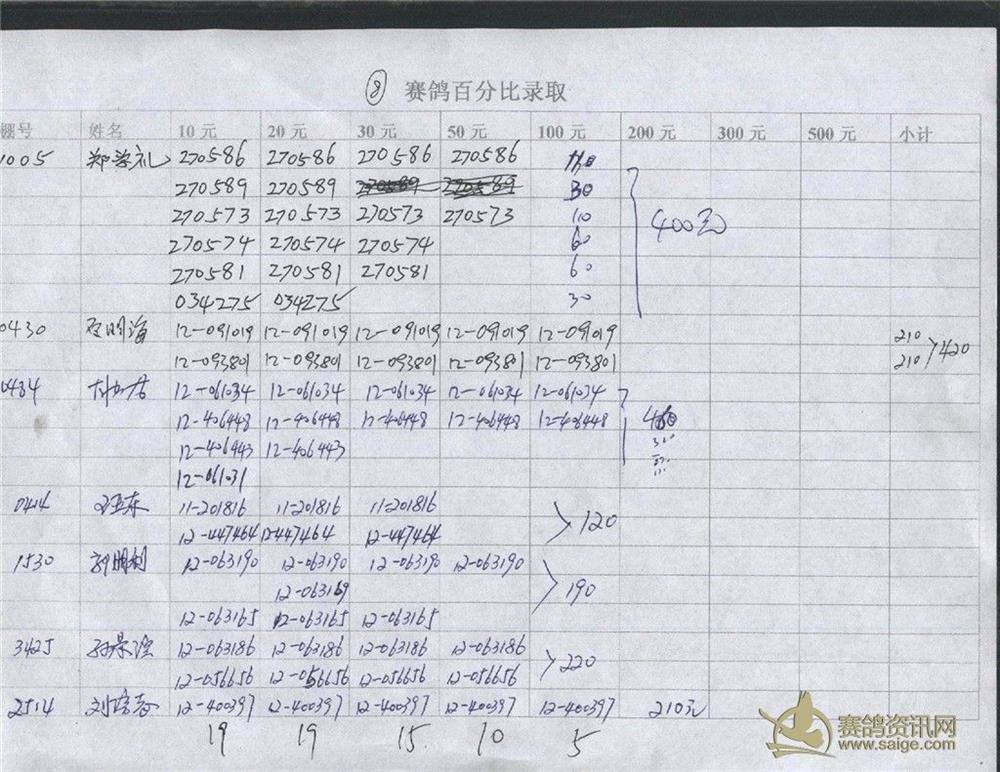 ⑧ 赛鸽百分比录取
棚号 姓名 10元 20元 30元 50元 100元 200元 300元 500元 小计
1005 郑学礼 270586 270586 270586 270586 110
270589 270589 270589 270589 30
270573 270573 270573 270573 110 400元
270574 270574 270574 60
270581 270581 270581 60
034275 034275 30
0430 12-091019 12-091019 12-091019 12-091019 12-091019 210
12-093801 12-093801 12-093801 12-093801 12-093801 210 420
0484 12-061034 12-061034 12-061034 12-061034 12-061034
12-406448 12-406448 12-406448 12-406448 12-406448
12-406443 12-406443
12-061031
0414 11-201816 11-201816 11-201816
12-447464 12-447464 12-447464 120
1530 12-063190 12-063190 12-063190 12-063190
12-063169 190
12-063165 12-063165 12-063165
3425 孙景 12-063186 12-063186 12-063186 12-063186
12-056656 12-056656 12-056656 12-056656 220
2514 12-400397 12-400397 12-400397 12-400397 12-400397 210元
19 19 15 10 5
赛鸽资讯网
www.saige.com